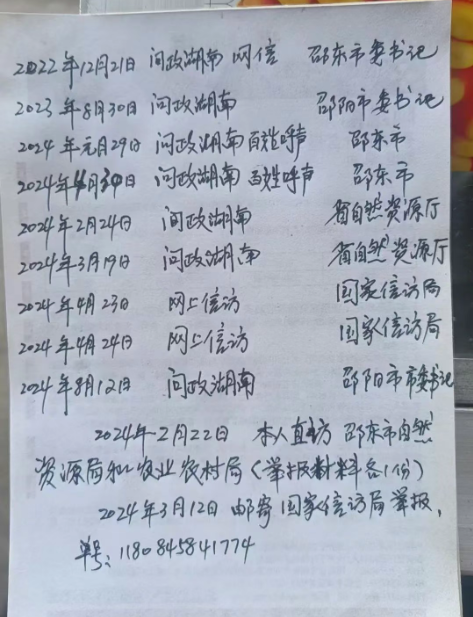 2022年12月21日 问政湖南 网信 邵东市委书记
2023年8月30日 问政湖南 邵阳市委书记
2024年元月29日 问政湖南 百姓呼声 邵东市
2024年4月30日 问政湖南 百姓呼声 邵东市
2024年2月24日 问政湖南 省自然资源厅
2024年3月19日 问政湖南 省自然资源厅
2024年4月23日 网上信访 国家信访局
2024年4月24日 网上信访 国家信访局
2024年8月12日 问政湖南 邵阳市市委书记
2024年2月22日 本人直访 邵东市自然
资源局和农业农村局(举报材料各1份)
2024年3月12日 邮寄国家信访局举报,
单号:1180845841774